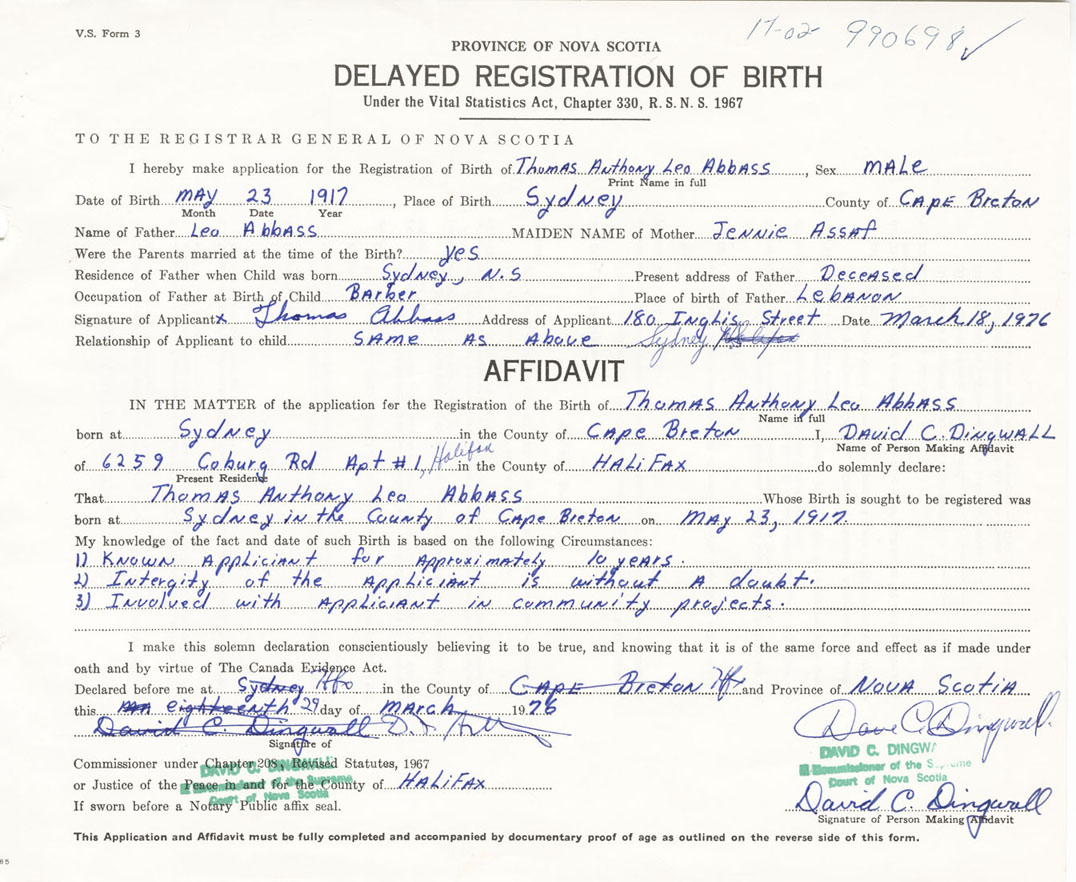 V.S. Form 3
17-02 990698 ✓
PROVINCE OF NOVA SCOTIA
DELAYED REGISTRATION OF BIRTH
Under the Vital Statistics Act, Chapter 330, R.S.N.S. 1967
TO THE REGISTRAR GENERAL OF NOVA SCOTIA
I hereby make application for the Registration of Birth of Thomas Anthony Leo Abbass, Sex MALE
Print Name in full
Date of Birth MAY 23 1917, Place of Birth Sydney County of CAPE Breton
Month Date Year
Name of Father Leo Abbass MAIDEN NAME of Mother Jennie Assaf
Were the Parents married at the time of the Birth? yes
Residence of Father when Child was born Sydney, N.S Present address of Father Deceased
Occupation of Father at Birth of Child BArber Place of birth of Father Lebanon
Signature of Applicant x Thomas Abbass Address of Applicant 180 Inglis Street Date March 18, 1976
Relationship of Applicant to child SAME AS Above Sydney Halifax
AFFIDAVIT
IN THE MATTER of the application for the Registration of the Birth of Thomas Anthony Leo Abbass
Name in full
born at Sydney in the County of CAPE Breton I, DAVID C. DINGWALL
Name of Person Making Affidavit
of 6259 Coburg Rd Apt #1, Halifax in the County of HALIFAX do solemnly declare:
Present Residence
That Thomas Anthony Leo Abbass Whose Birth is sought to be registered was
born at Sydney in the County of Cape Breton on MAY 23, 1917.
My knowledge of the fact and date of such Birth is based on the following Circumstances:
1) Known Appliciant for Approximately 10 years.
2) Intergity of the Appliciant is without A doubt.
3) Involved with Appliciant in community projects.
I make this solemn declaration conscientiously believing it to be true, and knowing that it is of the same force and effect as if made under
oath and by virtue of The Canada Evidence Act.
Declared before me at Sydney Hfx in the County of CAPE Breton Hfx and Province of NOVA SCOTIA
this eighteenth 29 day of MARCH 1976
David C. Dingwall Dave C. Dingwall
Signature of
DAVID C. DINGWA
Commissioner under Chapter 208, Revised Statutes, 1967
A Commissioner of the Supreme
Court of Nova Scotia
DAVID C. DINGWALL
A Commissioner of the Supreme
Court of Nova Scotia
or Justice of the Peace in and for the County of HALIFAX
David C. Dingwall
If sworn before a Notary Public affix seal.
Signature of Person Making Affidavit
This Application and Affidavit must be fully completed and accompanied by documentary proof of age as outlined on the reverse side of this form.